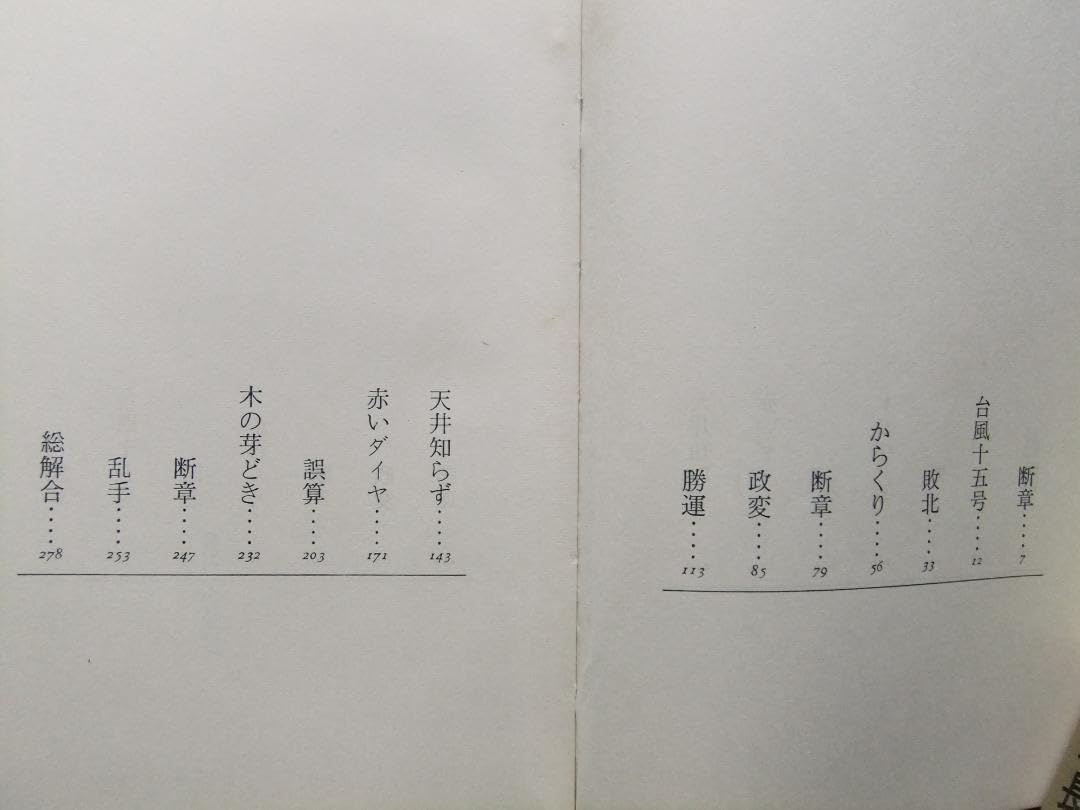 断章‥‥7
台風十五号‥‥12
敗北‥‥33
からくり‥‥56
断章‥‥79
政変‥‥85
勝運‥‥113
天井知らず‥‥143
赤いダイヤ‥‥171
誤算‥‥203
木の芽どき‥‥232
断章‥‥247
乱手‥‥253
総解合‥‥278